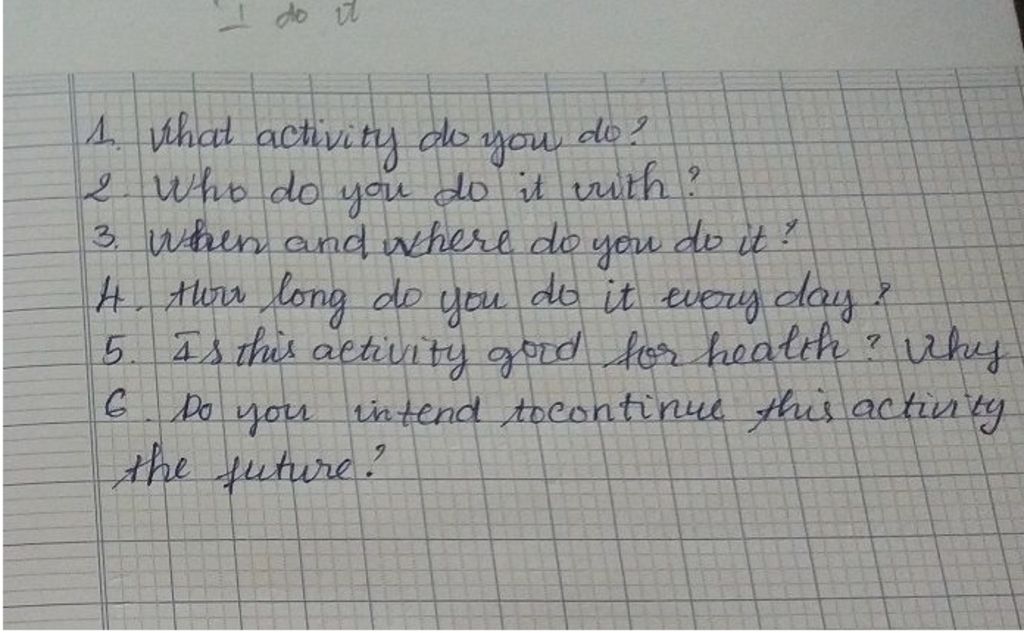 I do it
1. What activity do you do?
2. Who do you do it with?
3. When and where do you do it?
4. How long do you do it every day?
5. Is this activity good for health? Why
6. Do you intend to continue this activity
the future?